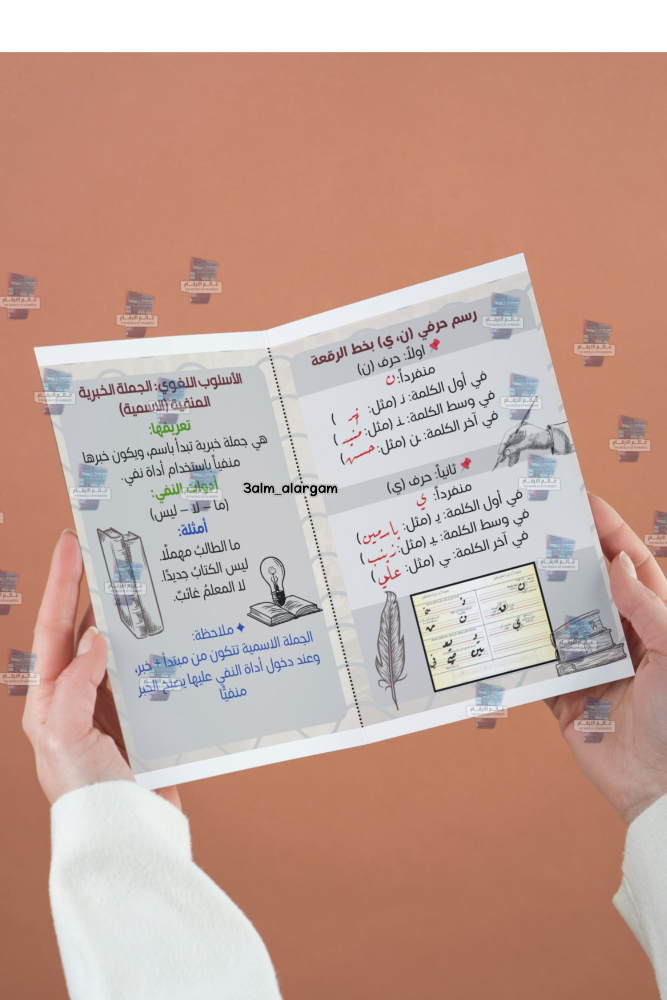 رسم حرفي (ن، ي) بخط الرقعة
أولاً: حرف (ن)
منفرداً: ن
في أول الكلمة: نـ (مثل: )
في وسط الكلمة: ـنـ (مثل: )
في آخر الكلمة: ـن (مثل: حسن)
ثانياً: حرف (ي)
منفرداً: ي
في أول الكلمة: يـ (مثل: ياسمين)
في وسط الكلمة: ـيـ (مثل: زينب)
في آخر الكلمة: ـي (مثل: علي)
الأسلوب اللغوي: الجملة الخبرية
المنفية (الاسمية)
تعريفها:
هي جملة خبرية تبدأ باسم، ويكون خبرها
منفياً باستخدام أداة نفي.
أدوات النفي:
(ما – لا – ليس)
أمثلة:
ما الطالبُ مهملًا.
ليس الكتابُ جديدًا.
لا المعلمُ غائبٌ.
ملاحظة:
الجملة الاسمية تتكون من مبتدأ + خبر،
وعند دخول أداة النفي عليها يصبح الخبر
منفيًا
3alm_alargam
عالم الارقام